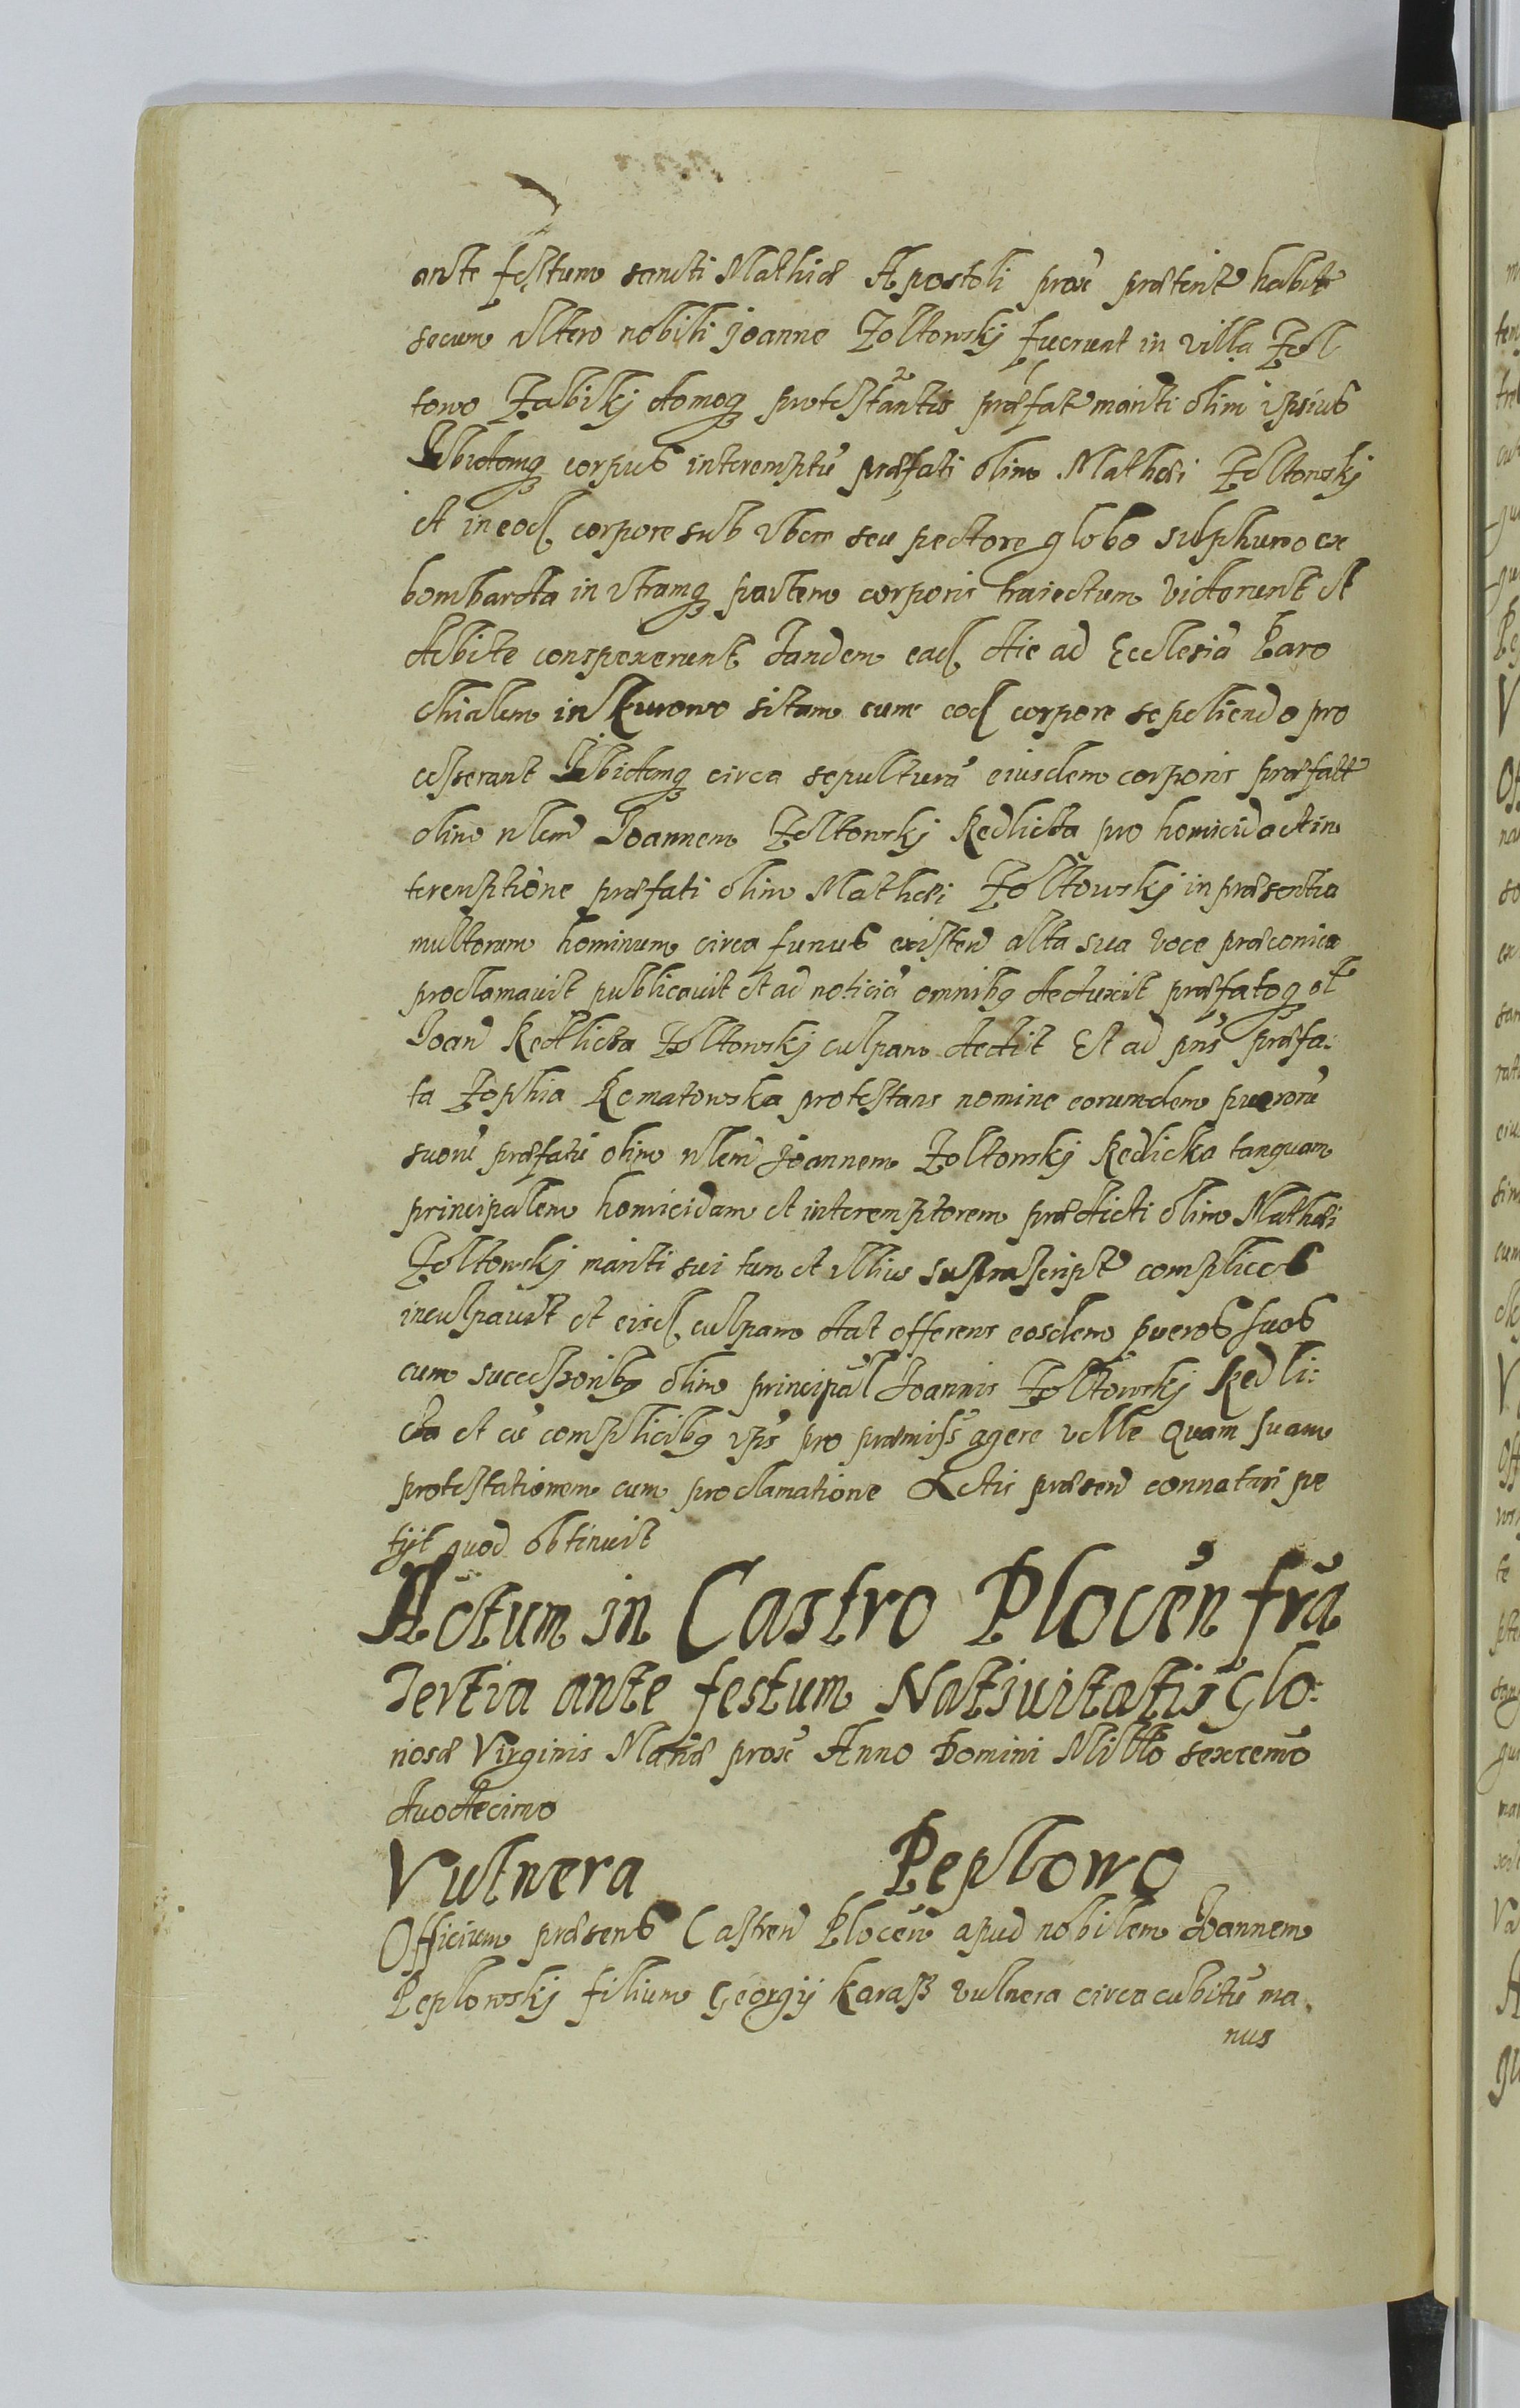 ante festum sancti Mathiæ Apostoli prox̄ præterit habit
secum altero nobili Joanne Zoltowskj fuerunt in villa Zol
towo Zabikj domoq₃ protestantis præfat mariti olim ipsius
Ibidemq₃ corpus interemptū præfati olim Mathæi Zoltowskj
et in eod corpore sub vbere seu pectore globo sulphureo ex
bombarda in vtramq₃ partem corporis traiectum viderunt et
debite conspexerunt Tandem ead die ad Ecclesiā Paro
chialem in Kurowo sitam cum eod corpore sepeliendo pro
cesserant Ibidemq₃ circa sepulturā eiusdem corporis præfatt
olim nlem Joannem Zoltowskj Redlicka pro homicida et in
teremptione præfati olim Mathæi Zoltowskj in præsentia
multorum hominum circa funus existen alta sua voce præconica
proclamavit publicavit et ad noticiā omnibq₃ deduxit præfatoq₃ ol
Joan Redlicka Zoltowskj culpam dedit Et ad pn̄s præfa:
ta Zophia Rematowska protestans nomine eorumdem puerorū
suorū præfatū olim nlem Joannem Zoltowskj Redlicka tanquam
principalem homicidam et interemptorem prædicti olim Mathæi
Zoltowskj mariti sui tum et illius suprascript complices
inculpavit et eisd culpam dat offerens eosdem pueros suos
cum successoribq₃ olim principal Joannis Zoltowskj Redli:
cka et cū complicibq₃ ip̄s pro præmiss agere velle Quam suam
protestationem cum proclamatione Actis præsen connotari pe
tÿt quod obtinuit
Actum in Castro Plocēn fr̄a
Tertia ante festum Nativitatis Glo:
riosæ Virginis Mariæ prox̄ Anno Domini Millō sexcenō
duodecimo
Vulnera Peplowo
Officium præsens Castren Plocēn apud nobilem Joannem
Peplowskj filium Georgÿ Karaß vulnera circa cubitū ma.
nus